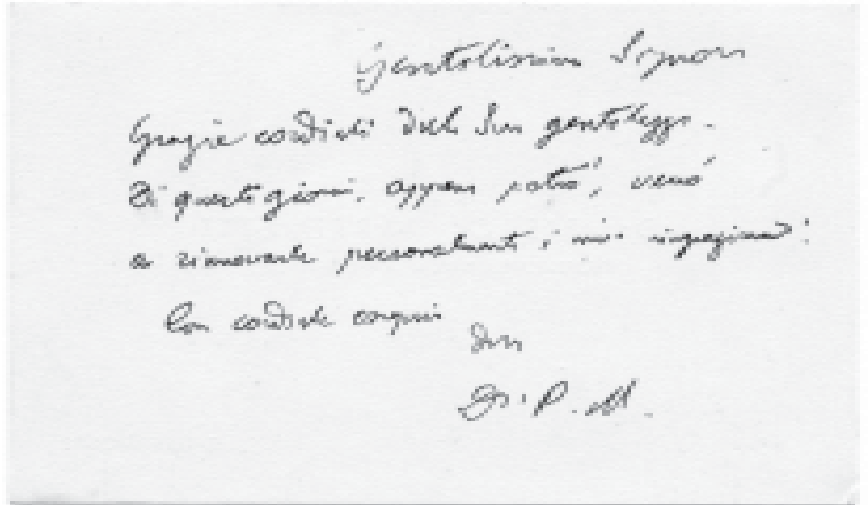 Gentilissim Signor
Grazie cordiali della Sua gentilezza.
Di questi giorni, appena potrò, verrò
a rinnovarle personalmente i miei ringraziamenti
Con cordiale ossequio